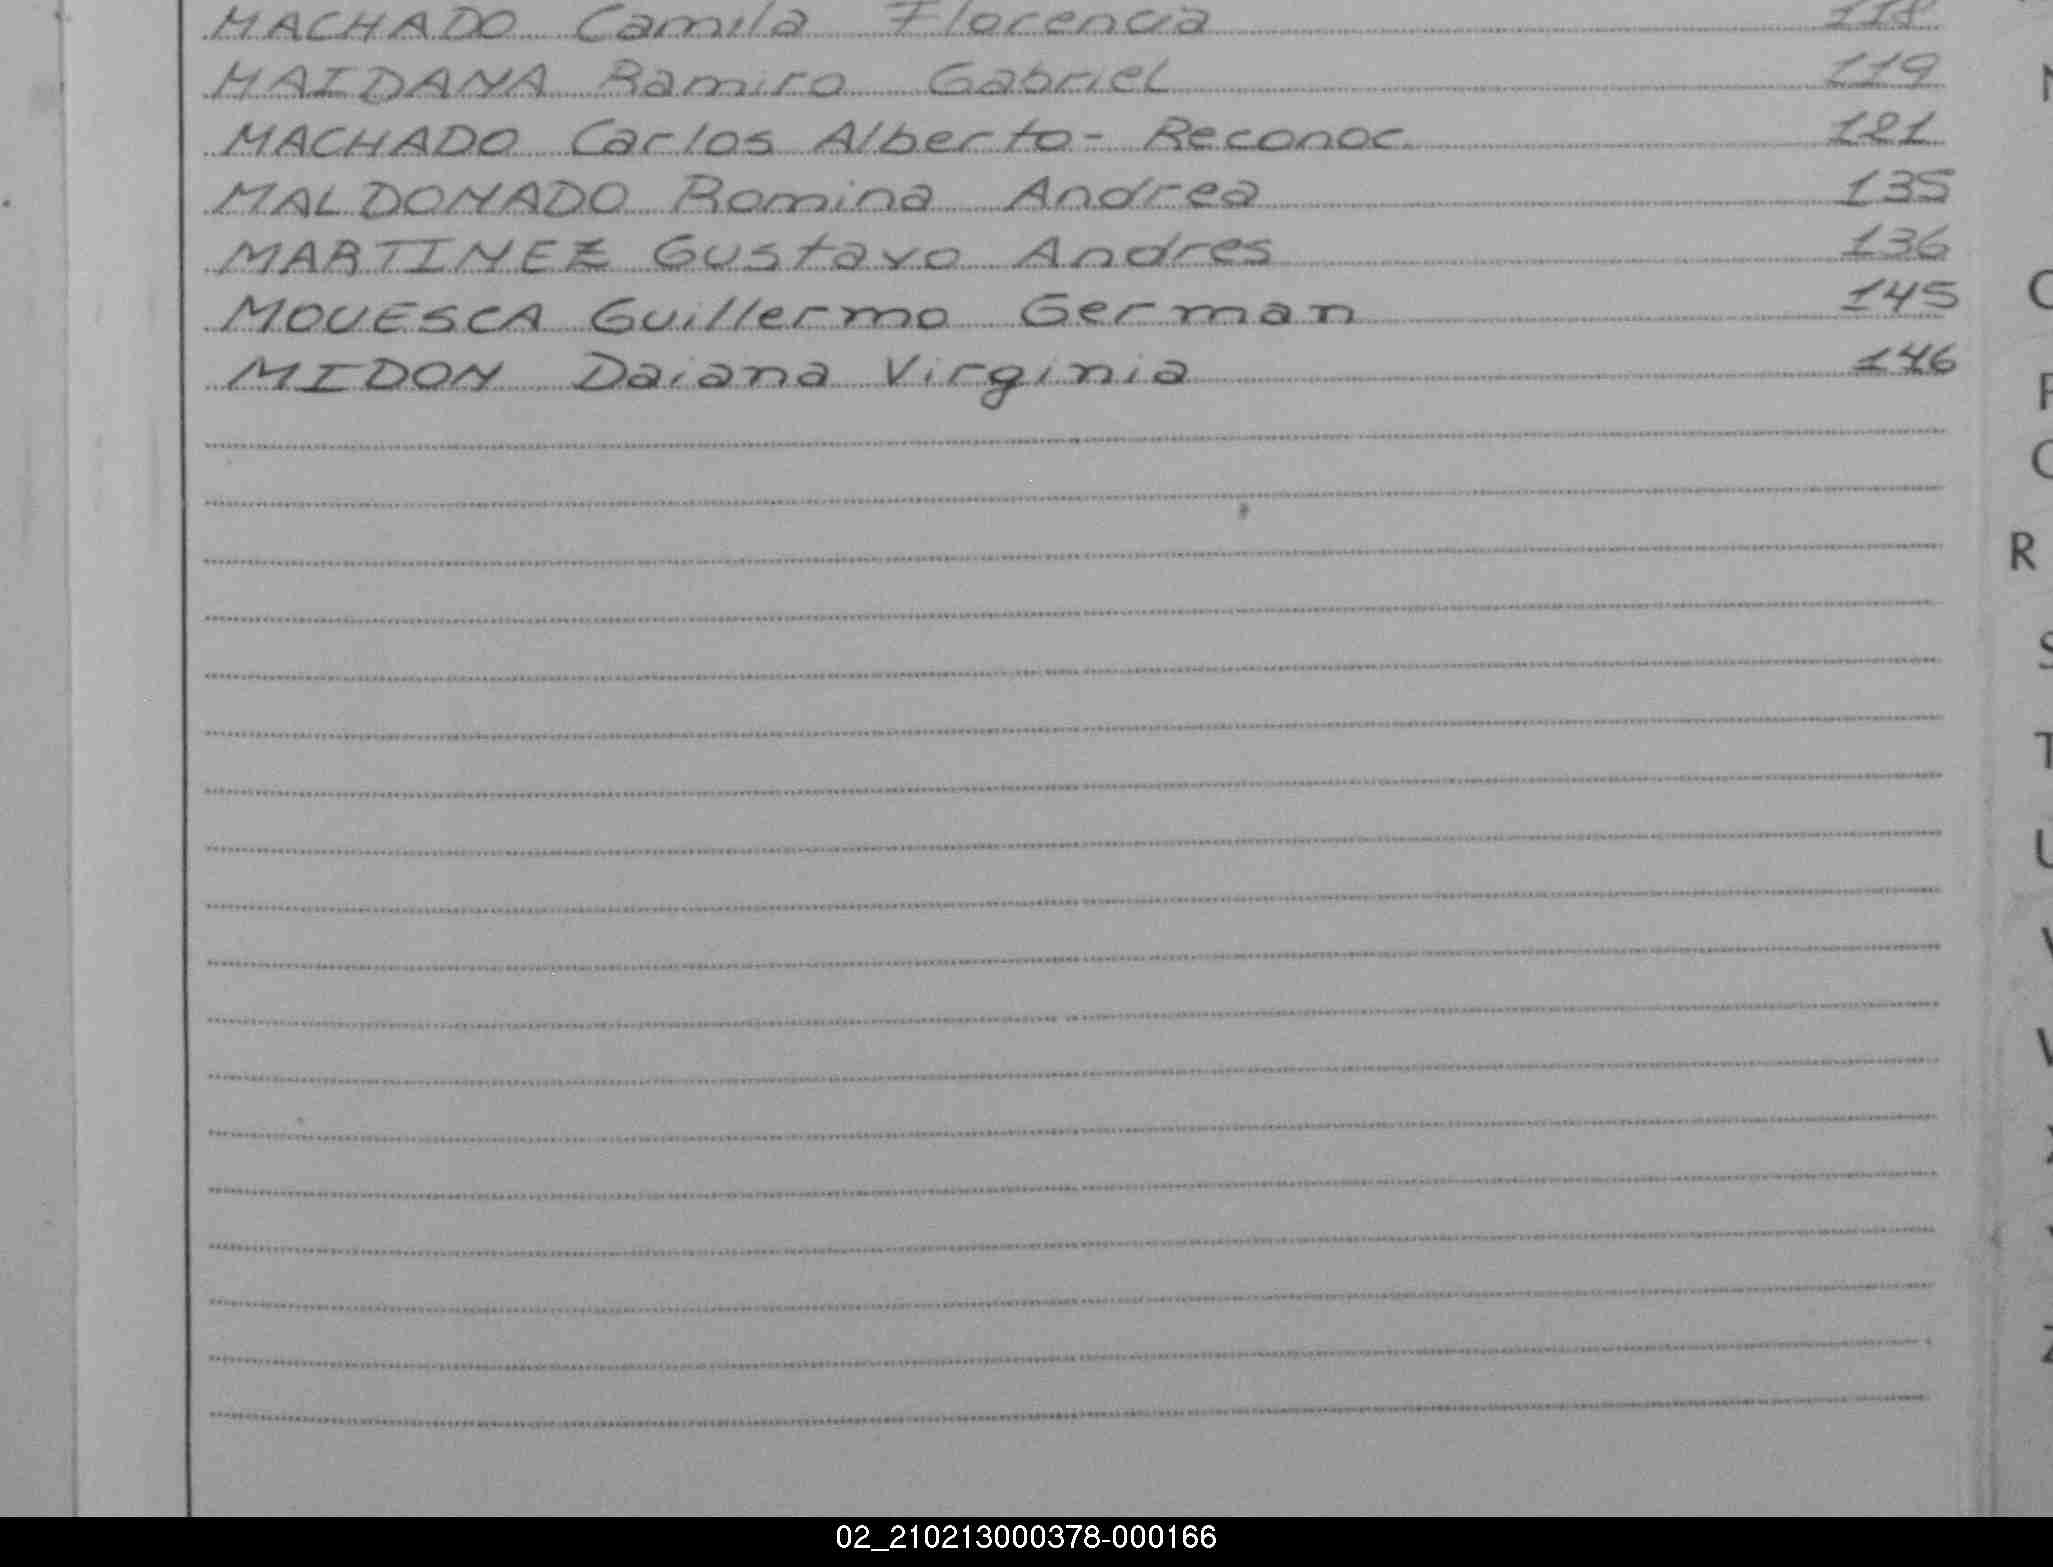 MACHADO Camila Florencia 118
MAIDANA Ramiro Gabriel 119
MACHADO Carlos Alberto - Reconoc. 121
MALDONADO Romina Andrea 135
MARTINEZ Gustavo Andres 136
MOUESCA Guillermo German 145
MIDON Daiana Virginia 146
R
S
T
U
V
W
X
Y
Z
02_210213000378-000166